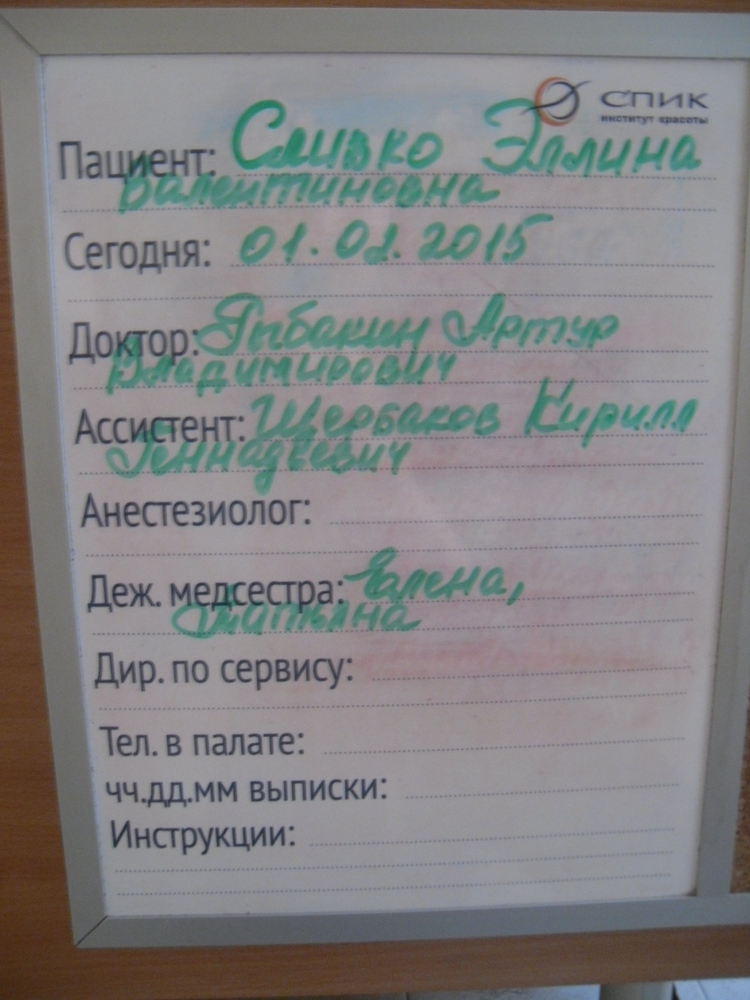 СПИК
институт красоты
Пациент: Сливко Эллина
Валентиновна
Сегодня: 01.02.2015
Доктор: Рыбакин Артур
Владимирович
Ассистент: Щербаков Кирилл
Геннадьевич
Анестезиолог:
Деж. медсестра: Елена,
Татьяна
Дир. по сервису:
Тел. в палате:
чч.дд.мм выписки:
Инструкции: